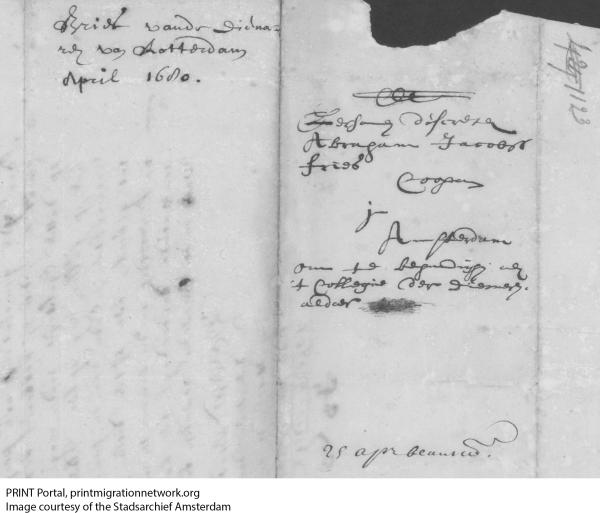 Brief vande Diena-
ren van Rotterdam
April 1680.
Eersame discrete
Abraham Jacobss
fries
Coopm
in
Amsterdam
om te behandige aen
't Collegie der dienaren
aldaer
25 apr beantw.
1123
PRINT Portal, printmigrationnetwork.org
Image courtesy of the Stadsarchief Amsterdam